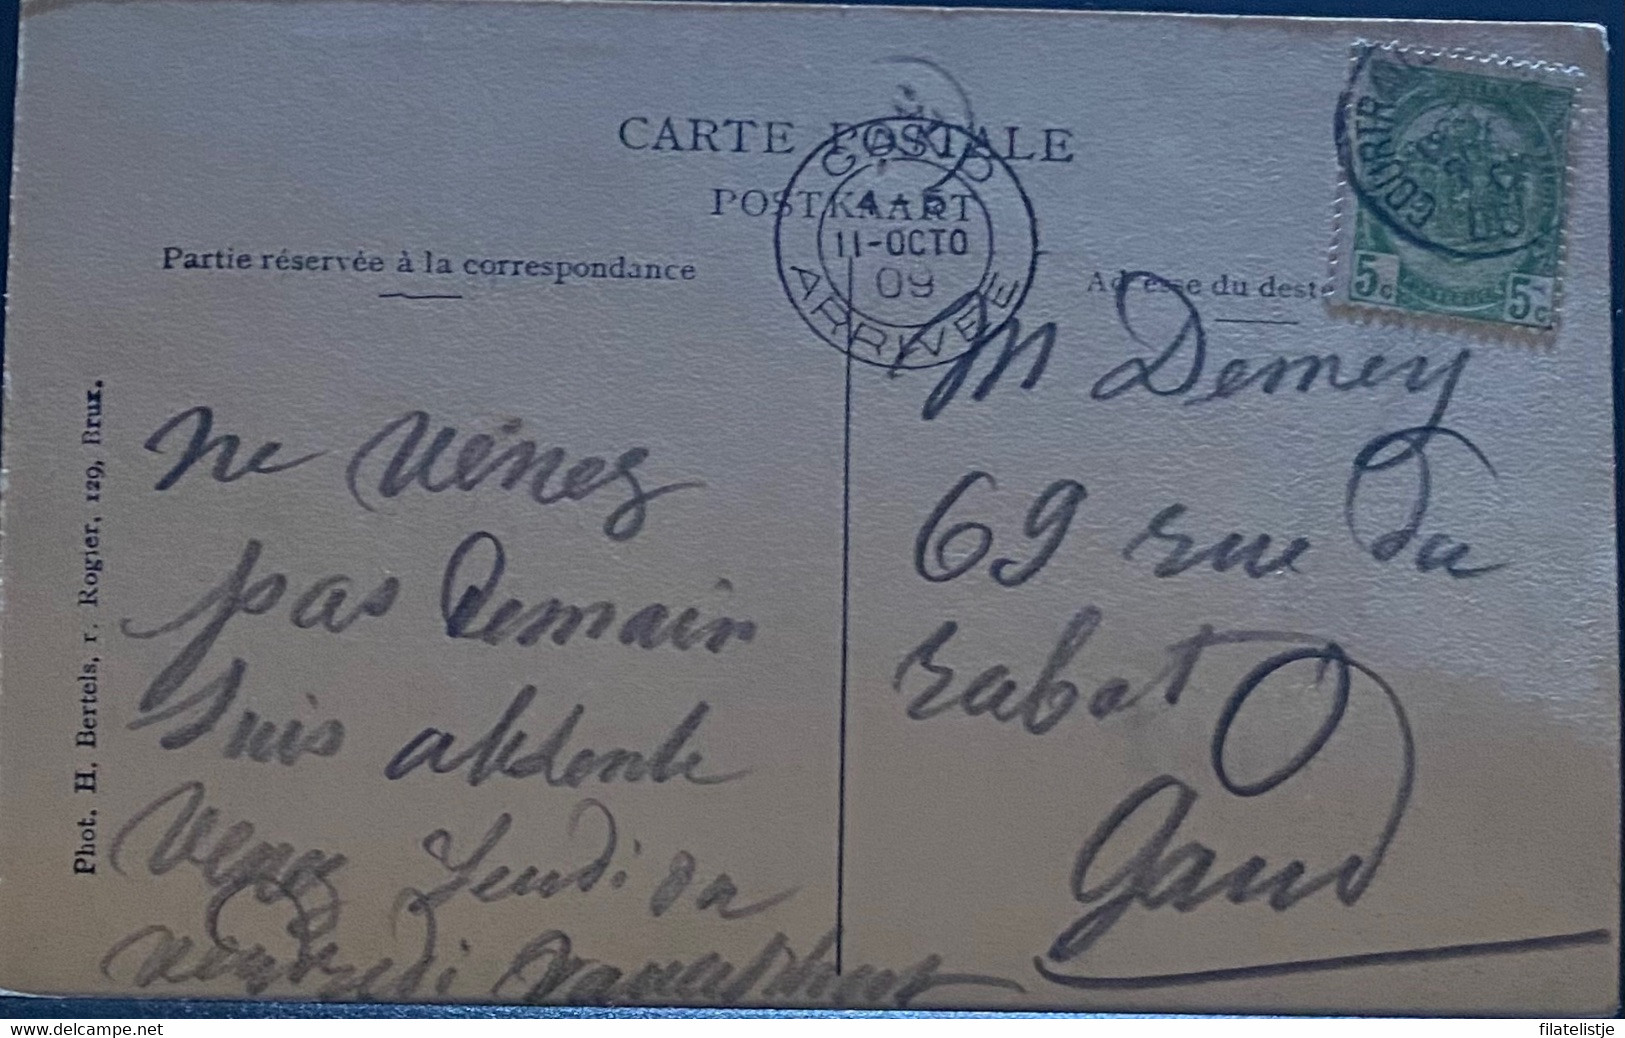 CARTE POSTALE
POSTKAART
Partie réservée à la correspondance
Adresse du dest
GAND
11-OCTO
09
ARRIVEE
COURTRAI
5c 5c
Phot. H. Bertels, r. Rogier, 129, Brux.
ne venez
pas Demain
Suis
Venez Jeudi ou
vendredi
M Demey
69 rue du
rabot
Gand
filatelistje